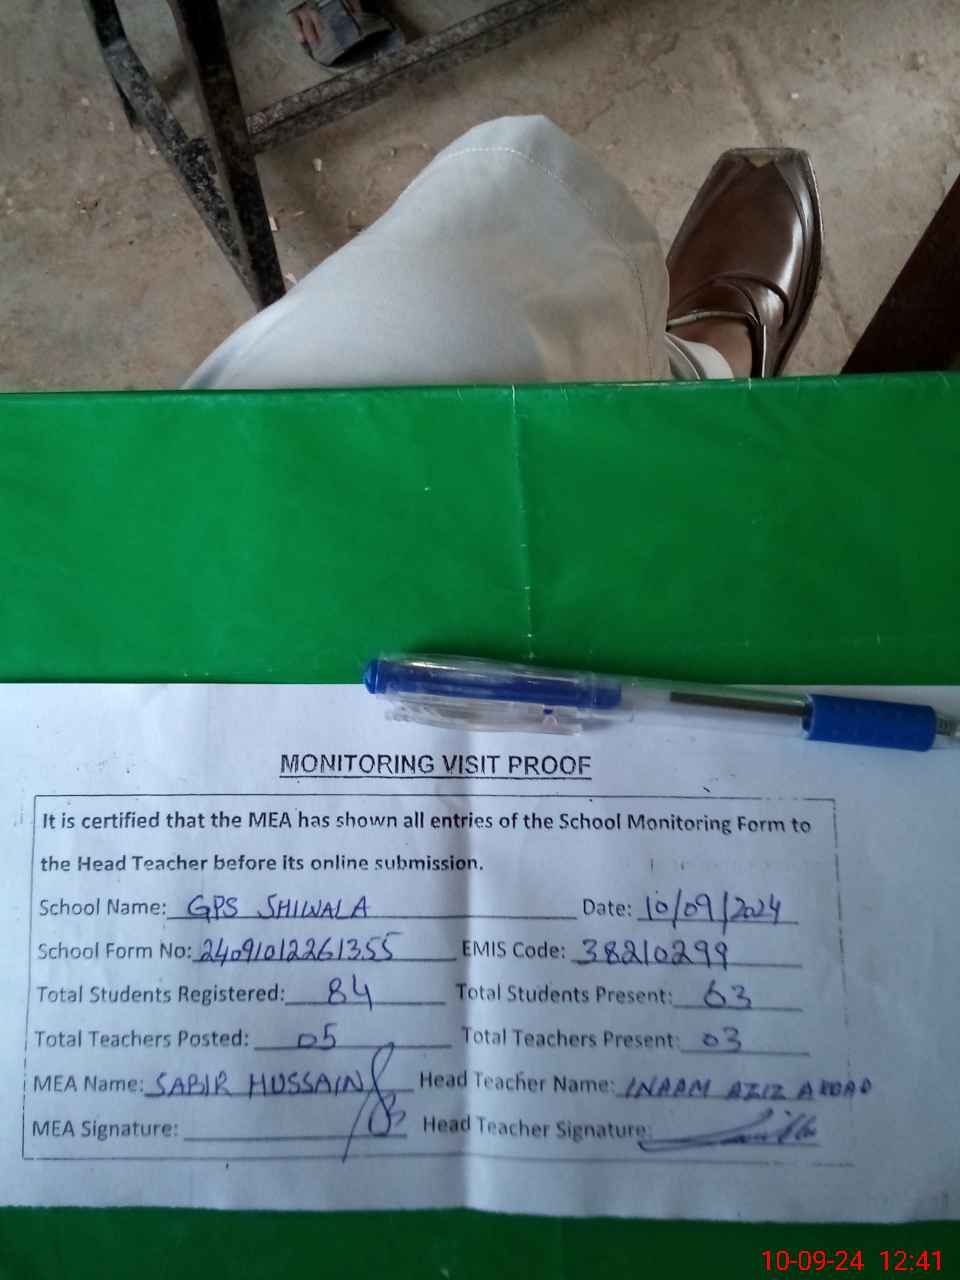 MONITORING VISIT PROOF
It is certified that the MEA has shown all entries of the School Monitoring Form to
the Head Teacher before its online submission.
School Name: GPS SHIWALA Date: 10/09/2024
School Form No: 24091012261355 EMIS Code: 38210299
Total Students Registered: 84 Total Students Present: 63
Total Teachers Posted: 05 Total Teachers Present: 03
MEA Name: SABIR HUSSAIN Head Teacher Name: INAAM AZIZ
MEA Signature: Head Teacher Signature:
10-09-24 12:41